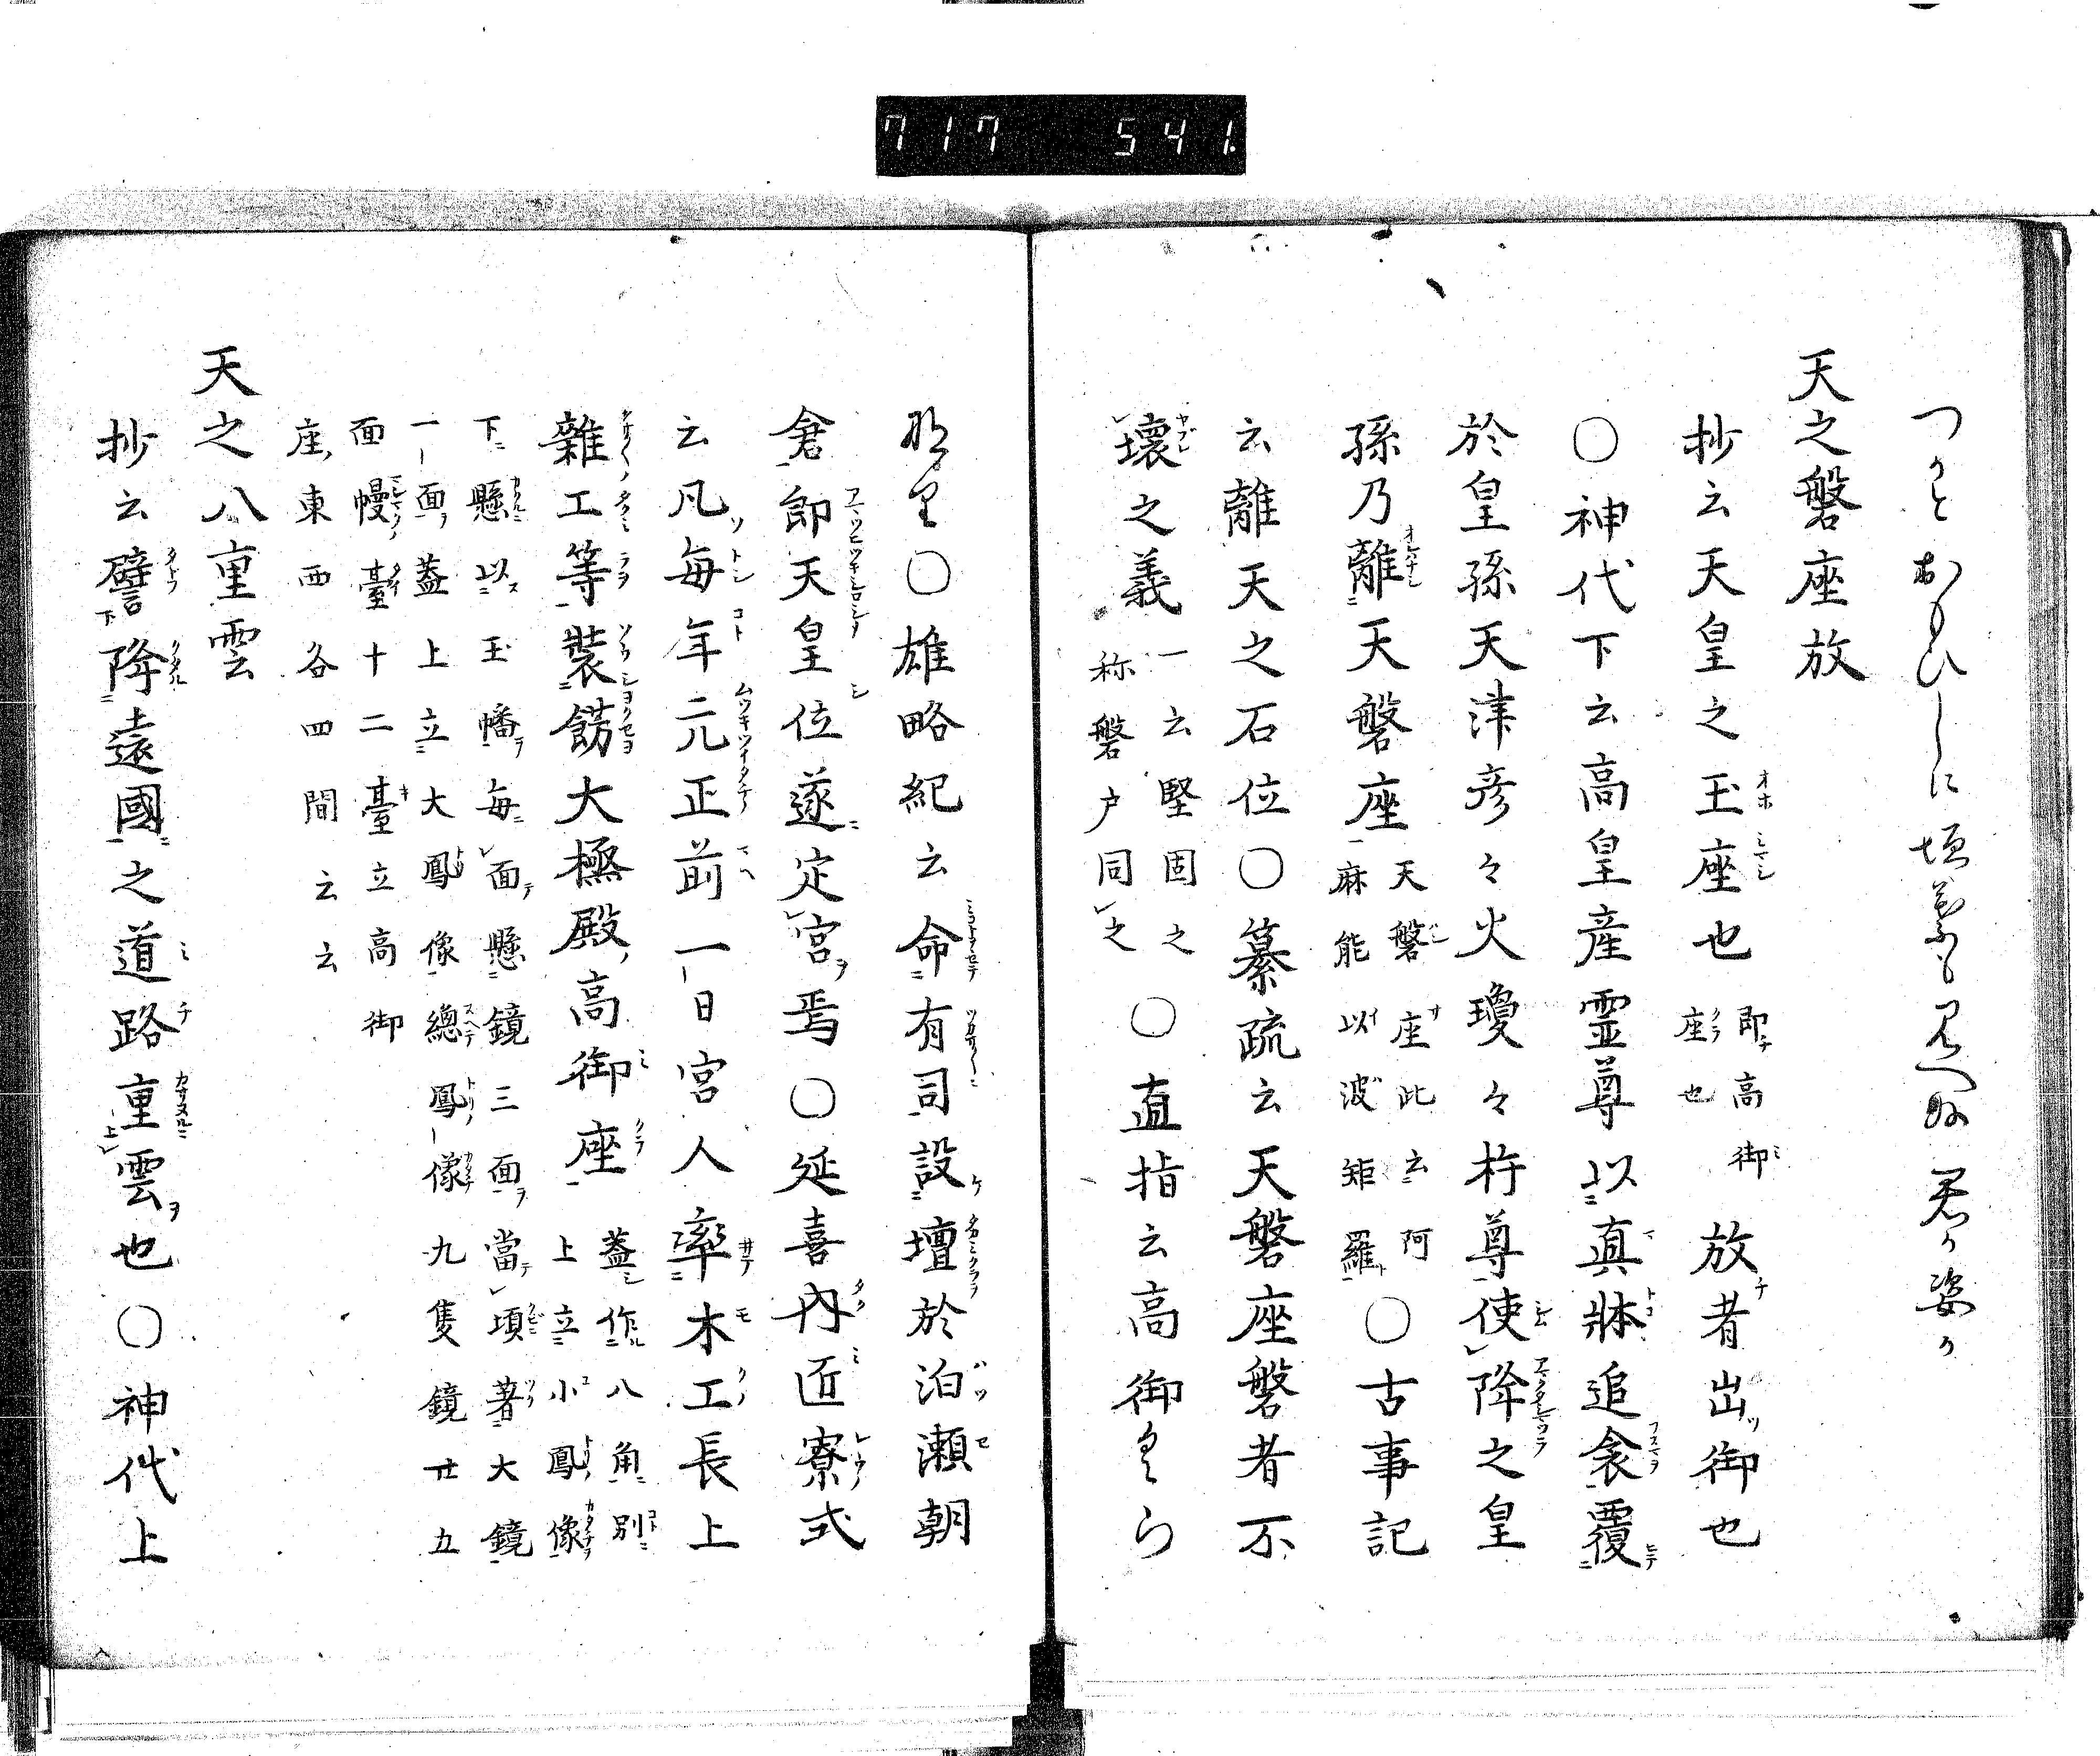 717 541.
つかとおもひしに垣葉も見へぬ君か姿か
天之磐座放
抄云天皇之玉座也即高御座也放者出御也
〇神代下云高皇産霊尊以真牀追衾覆
於皇孫天津彦々火瓊々杵尊使降之皇
孫乃離天磐座天磐座此云阿麻能以波矩羅〇古事記
云離天之石位〇纂疏云天磐座磐者不
壞之義一云堅固之称磐戸同之〇直指云高御くら
なり〇雄略紀云命有司設壇於泊瀬朝
倉即天皇位遂定宮焉〇延喜内匠寮式
云凡毎年元正前一日宮人率木工長上
雜工等装餝大極殿高御座蓋作八角別上立小鳳像
下懸以玉幡毎面懸鏡三面當頂著大鏡
一面蓋上立大鳳像總鳳像九隻鏡廿五
面幔臺十二臺立高御
座東西各四間云云
天之八重雲
抄云譬降遠國之道路重雲也〇神代上